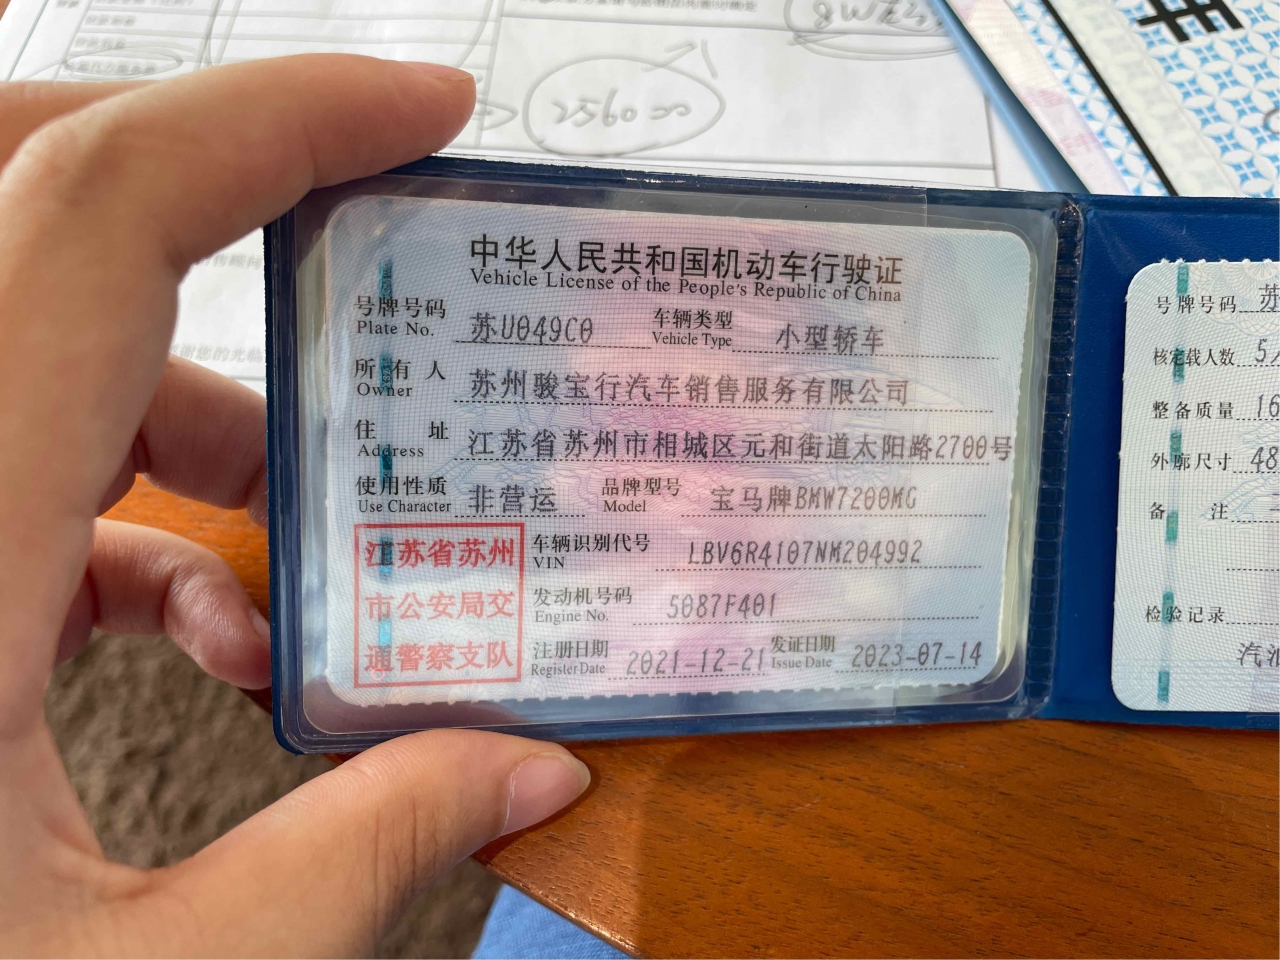 256000
中华人民共和国机动车行驶证
Vehicle License of the People's Republic of China
号牌号码 苏U049C0 车辆类型 小型轿车
Plate No. Vehicle Type
所有人 苏州骏宝行汽车销售服务有限公司
Owner
住址 江苏省苏州市相城区元和街道太阳路2700号
Address
使用性质 非营运 品牌型号 宝马牌BMW7200MG
Use Character Model
江苏省苏州
市公安局交
通警察支队
车辆识别代号 LBV6R4107NM204992
VIN
发动机号码 5087F401
Engine No.
注册日期 2021-12-21 发证日期 2023-07-14
Register Date Issue Date
号牌号码 苏
核定载人数 5
整备质量 16
外廓尺寸 48
备注
检验记录
汽